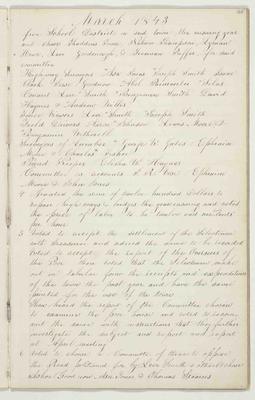 March 1843
five School Districts in said town the ensuing year
and chose Thaddeus Nahum Thompson Lyman
Morse, Levi Goodenough & Freeman Puffer for said
committee
Highway Surveyors Joseph Smith Isaac
Clark Goodnow Abel Silas
Smith Benjamin Smith David
Haynes & Andrew Willis
Fence Viewers Levi Smith Joseph Smith
Field Drivers Johnson Lewis
Benjamin Witherell
Surveyors of Lumber George W. Gates Ephraim
Moore & Charles
Pound Keeper Elisha W. Haynes
Committee on accounts J. R. Ephraim
Moore & John
4 Granted the sum of twelve hundred dollars to
repair highways & bridges the year ensuing and voted
the price of labor to be twelve and
per hour
5 Voted to accept the settlement of the Selectmen
with Treasurer and advised the same to be recorded
Voted to accept the report of the Overseers of
the Poor then voted that the Selectmen make
out in tabular form the receipts and expenditures
of the town the past year and have the same
printed for the use of the town
Then heard the report of the Committee chosen
to examine the poor house and voted to
out the same with instructions that they further
investigate the subject and report and report
at April meeting
6 Voted to choose a Committee of three to oppose
the Road petitioned for by Levi Smith & others chose
Goodnow & Thomas Stearns